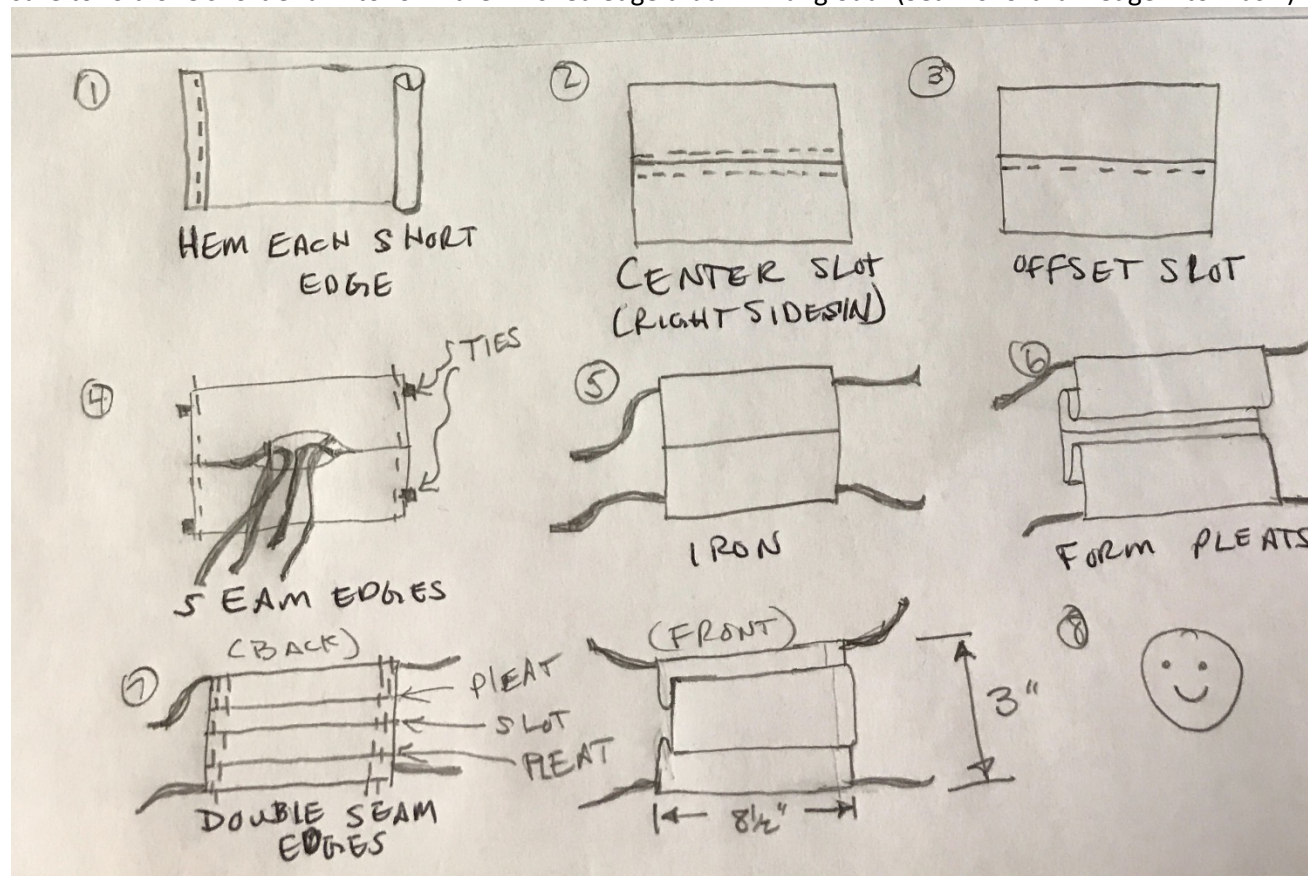 ①
HEM EACH SHORT
EDGE
②
CENTER SLOT
(RIGHT SIDES IN)
③
OFFSET SLOT
④
TIES
SEAM EDGES
⑤
IRON
⑥
FORM PLEATS
⑦
(BACK)
PLEAT
SLOT
PLEAT
DOUBLE SEAM
EDGES
(FRONT)
3"
8½"
⑧